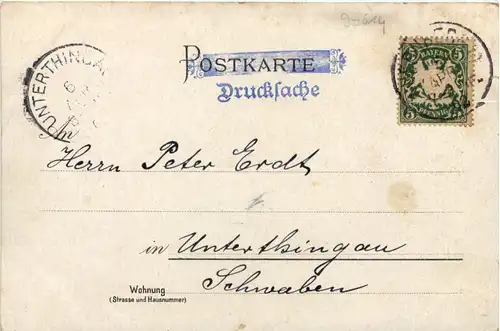 9-614
POSTKARTE
Drucksache
UNTERTHINGAU
6
BAYERN
5 5
PFENNIG
Herrn Peter Erdt
in Unterthingau
Schwaben
Wohnung
(Strasse und Hausnummer)